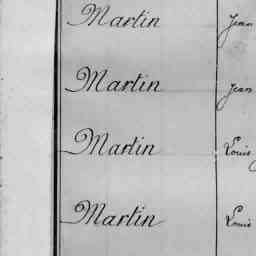 Martin Jean
Martin Jean
Martin Louis
Martin Louis